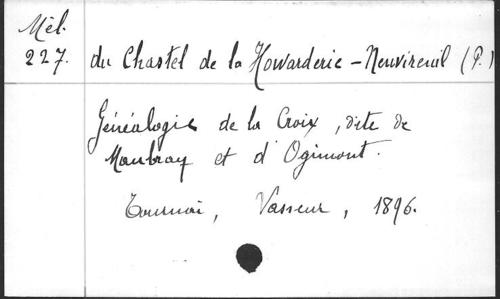 Mél.
227. du Chastel de la Howarderie - Neuvireuil (P.)
Généalogie de la Croix, dite de
Maubray et d'Ogimont.
Tournai, Vasseur, 1896.